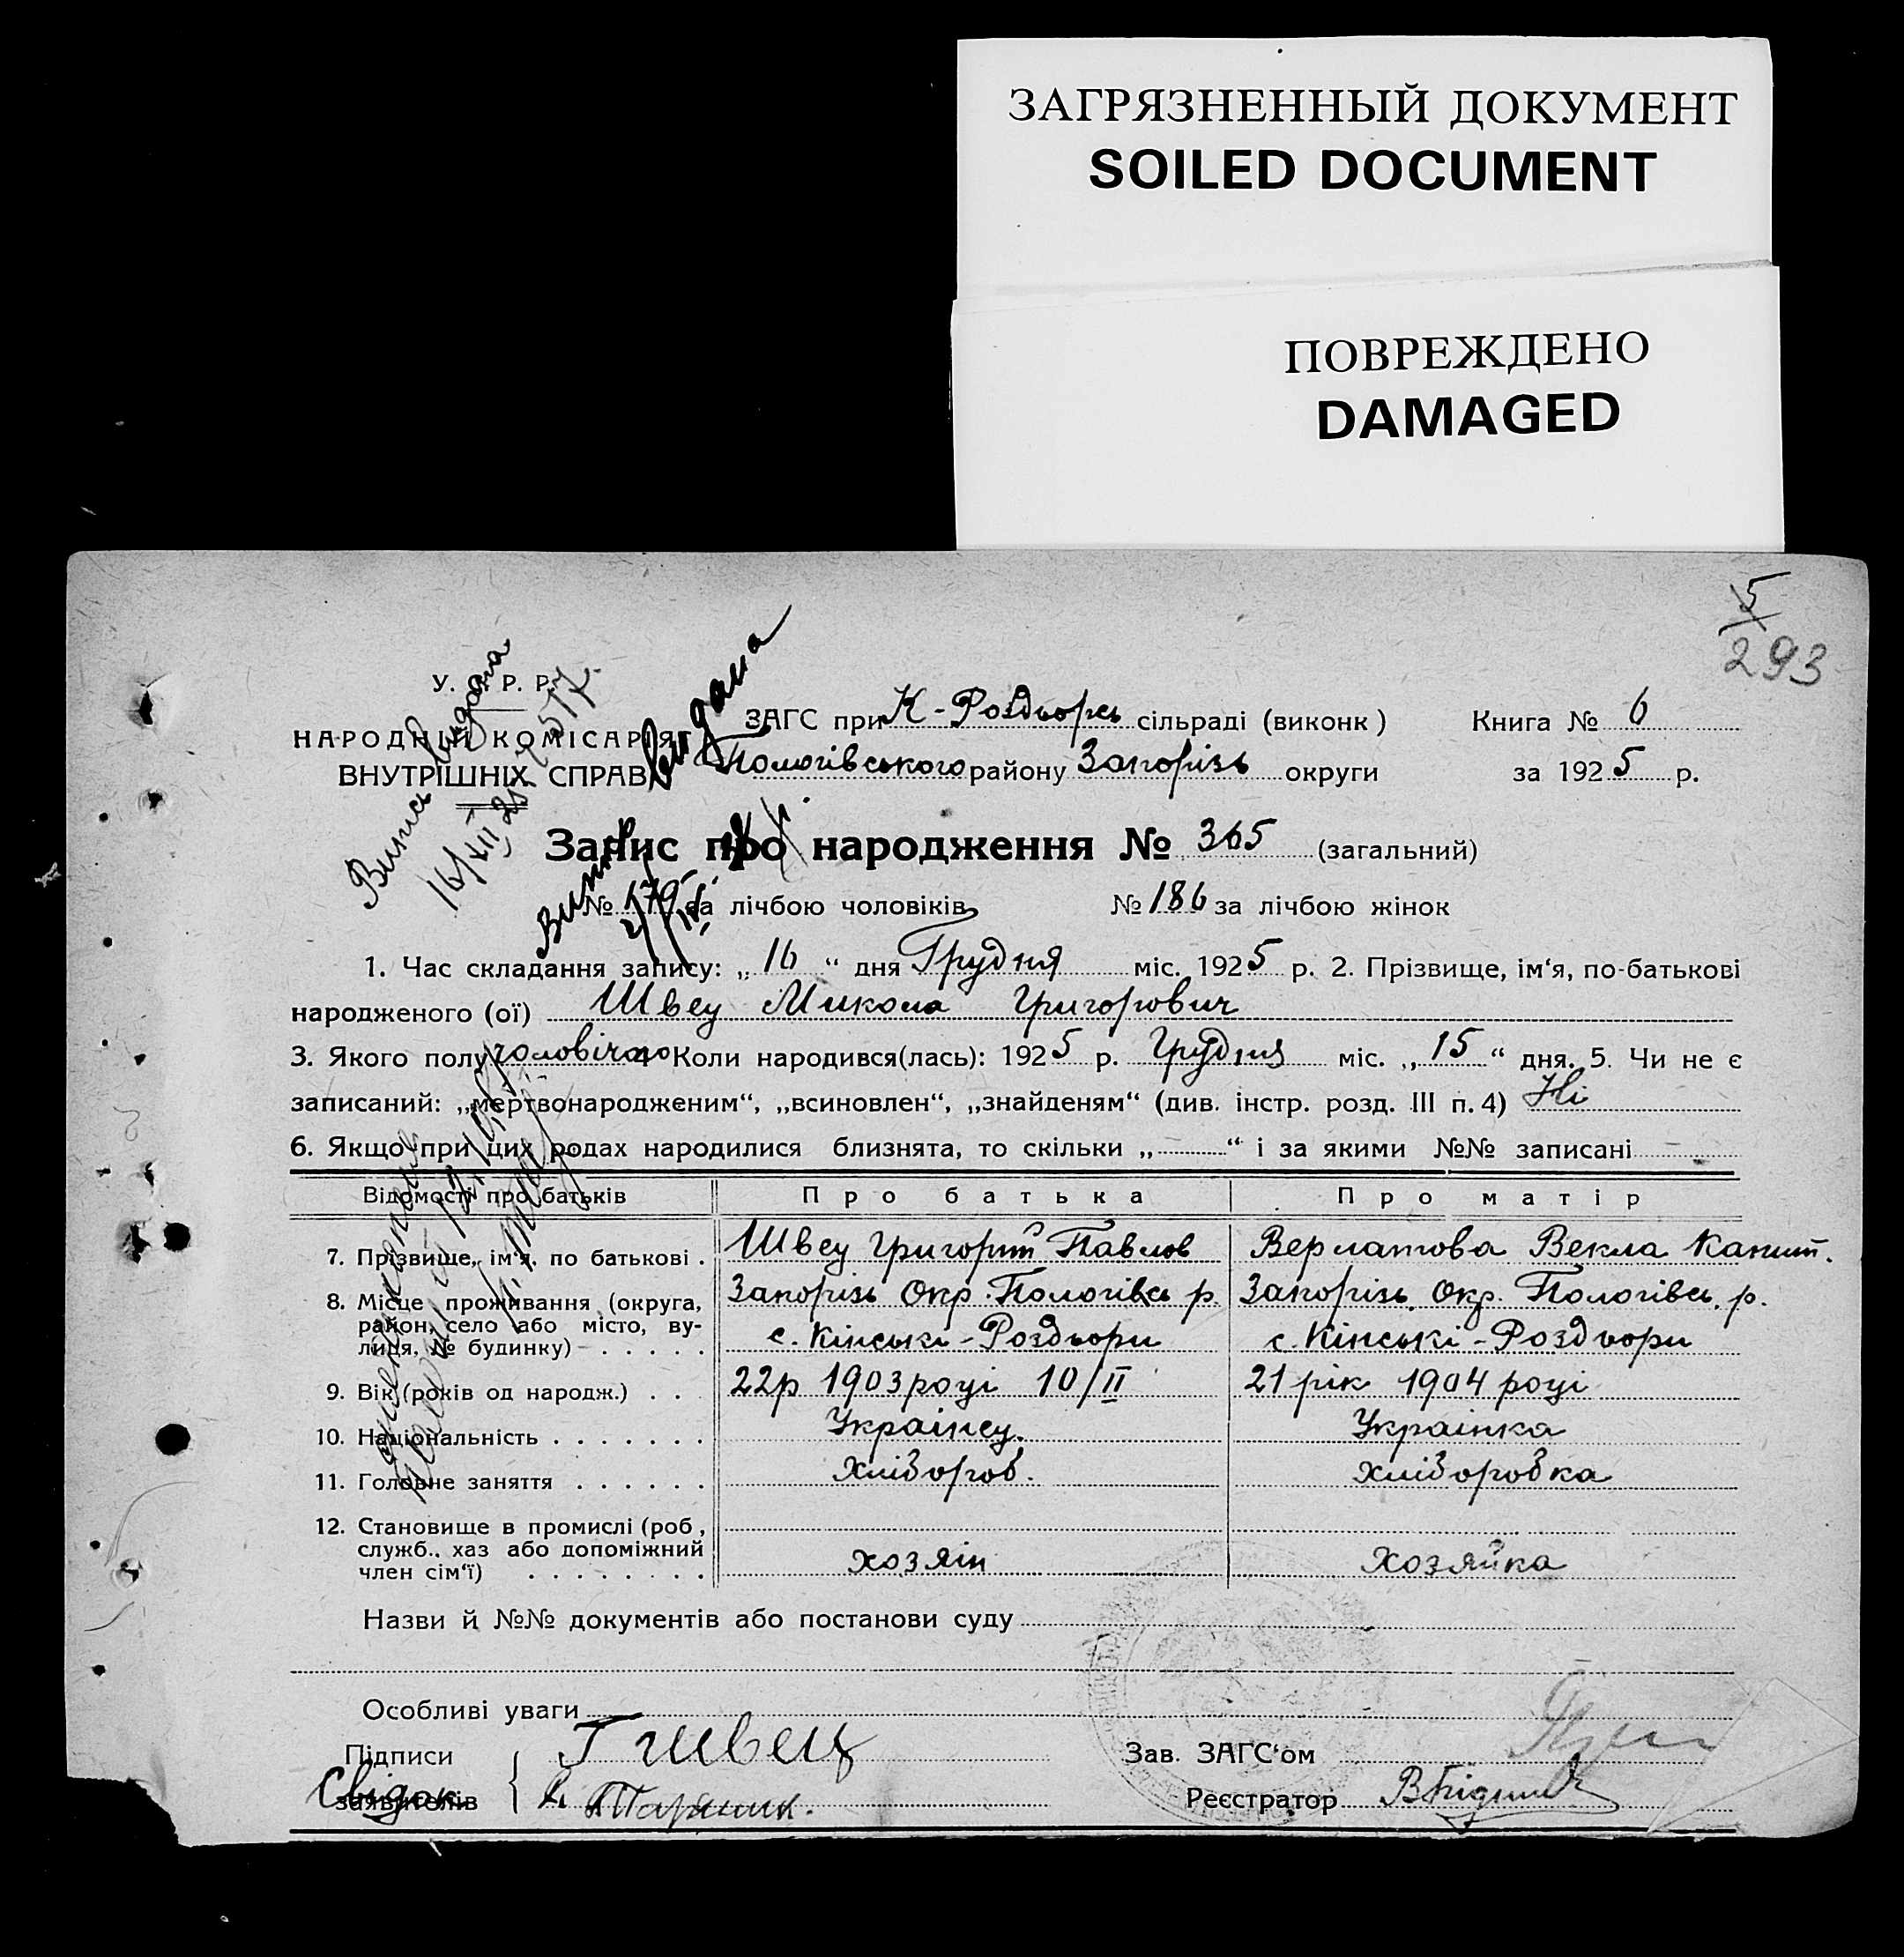 ЗАГРЯЗНЕННЫЙ ДОКУМЕНТ
SOILED DOCUMENT
ПОВРЕЖДЕНО
DAMAGED
5
293
У. С. Р. Р.
НАРОДНІЙ КОМІСАРІЯТ
ВНУТРІШНІХ СПРАВ
Випись видана
16/XII 25
Випись видана
ЗАГС при К-Роздорсь сільраді (виконк) Книга № 6
Пологівського району Запорізь округи за 1925 р.
Запис про народження № 365 (загальний)
№ 179 за лічбою чоловіків № 186 за лічбою жінок
1. Час складання запису: „16“ дня Грудня міс. 1925 р. 2. Прізвище, ім‘я, по-батькові
народженого (ої) Швец Микола Григорович
3. Якого полу чоловічого 4 Коли народився(лась): 1925 р. Грудня міс. „15“ дня. 5. Чи не є
записаний: „мертвонародженим“, „всиновлен“, „знайденям“ (див. інстр. розд. III п. 4) Ні
6. Якщо при цих родах народилися близнята, то скільки „ “ і за якими №№ записані
Відомості про батьків Про батька Про матір
7. Прізвище, ім‘я, по батькові . Швец Григорій Павлов Верлатова Векла
8. Місце проживання (округа, Запорізь Окр. Пологівсь р. Запорізь. Окр. Пологівсь. р.
район, село або місто, ву-
лиця, № будинку) . . . . . с. Кінські-Роздори с. Кінські-Роздори
9. Вік (років од народж.) . . . 22р 1903 році 10/II 21 рік 1904 році
10. Національність . . . . . . . Украінец. Украінка
11. Головне заняття . . . . . . Хлібороб. Хліборобка
12. Становище в промислі (роб,
служб., хаз або допоміжний хозяін Хозяйка
член сім‘ї) . . . . . . . .
Назви й №№ документів або постанови суду
Особливі уваги
Підписи Г Швец Зав. ЗАГС‘ом
Свідок.
заявителів Реєстратор